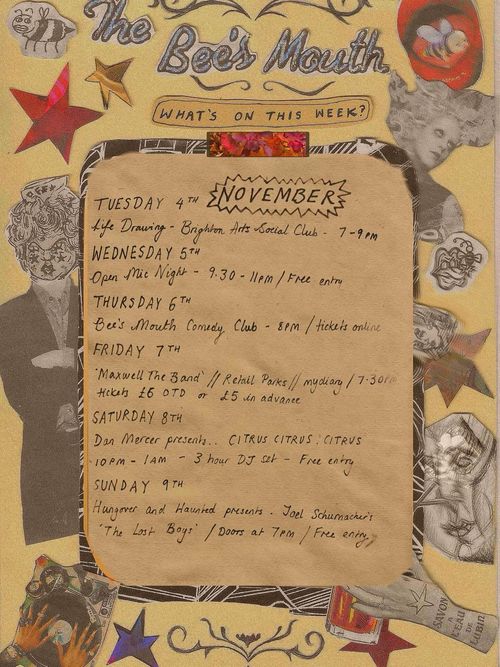 The
Bee's Mouth
WHAT'S ON THIS WEEK?
NOVEMBER
TUESDAY 4TH
Life Drawing - Brighton Arts Social Club - 7-9pm
WEDNESDAY 5TH
Open Mic Night - 9.30 - 11pm / Free entry
THURSDAY 6TH
Bee's Mouth Comedy Club - 8pm / tickets online
FRIDAY 7TH
'Maxwell The Band' // Retail Parks // mydiary / 7:30pm
tickets £6 OTD or £5 in advance
SATURDAY 8TH
Dan Mercer presents.. CITRUS CITRUS CITRUS
10pm - 1am - 3 hour DJ set - Free entry
SUNDAY 9TH
Hungover and Haunted presents - Joel Schumacher's
'The Lost Boys' / Doors at 7pm / Free entry
SAVON
A
L'EAU
DE
LUBIN